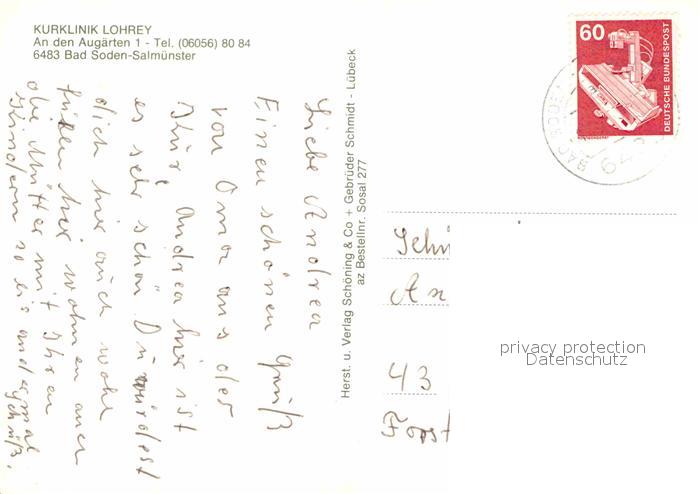 KURKLINIK LOHREY
An den Augärten 1 - Tel. (06056) 80 84
6483 Bad Soden-Salmünster
Liebe Andrea
Einen schönen Gruß
von Oma aus der
Kur, Andrea hier ist
es sehr schön Du würdest
dich hier auch wohl
fühlen hir wohnen auch
die Mütter mit Ihren
Kindern so bis andermal
Gruß.
Herst. u. Verlag Schöning & Co + Gebrüder Schmidt - Lübeck
az Bestellnr. Sosal 277
60
DEUTSCHE BUNDESPOST
BAD SODEN
64
Schi
An
43
Forst
privacy protection
Datenschutz